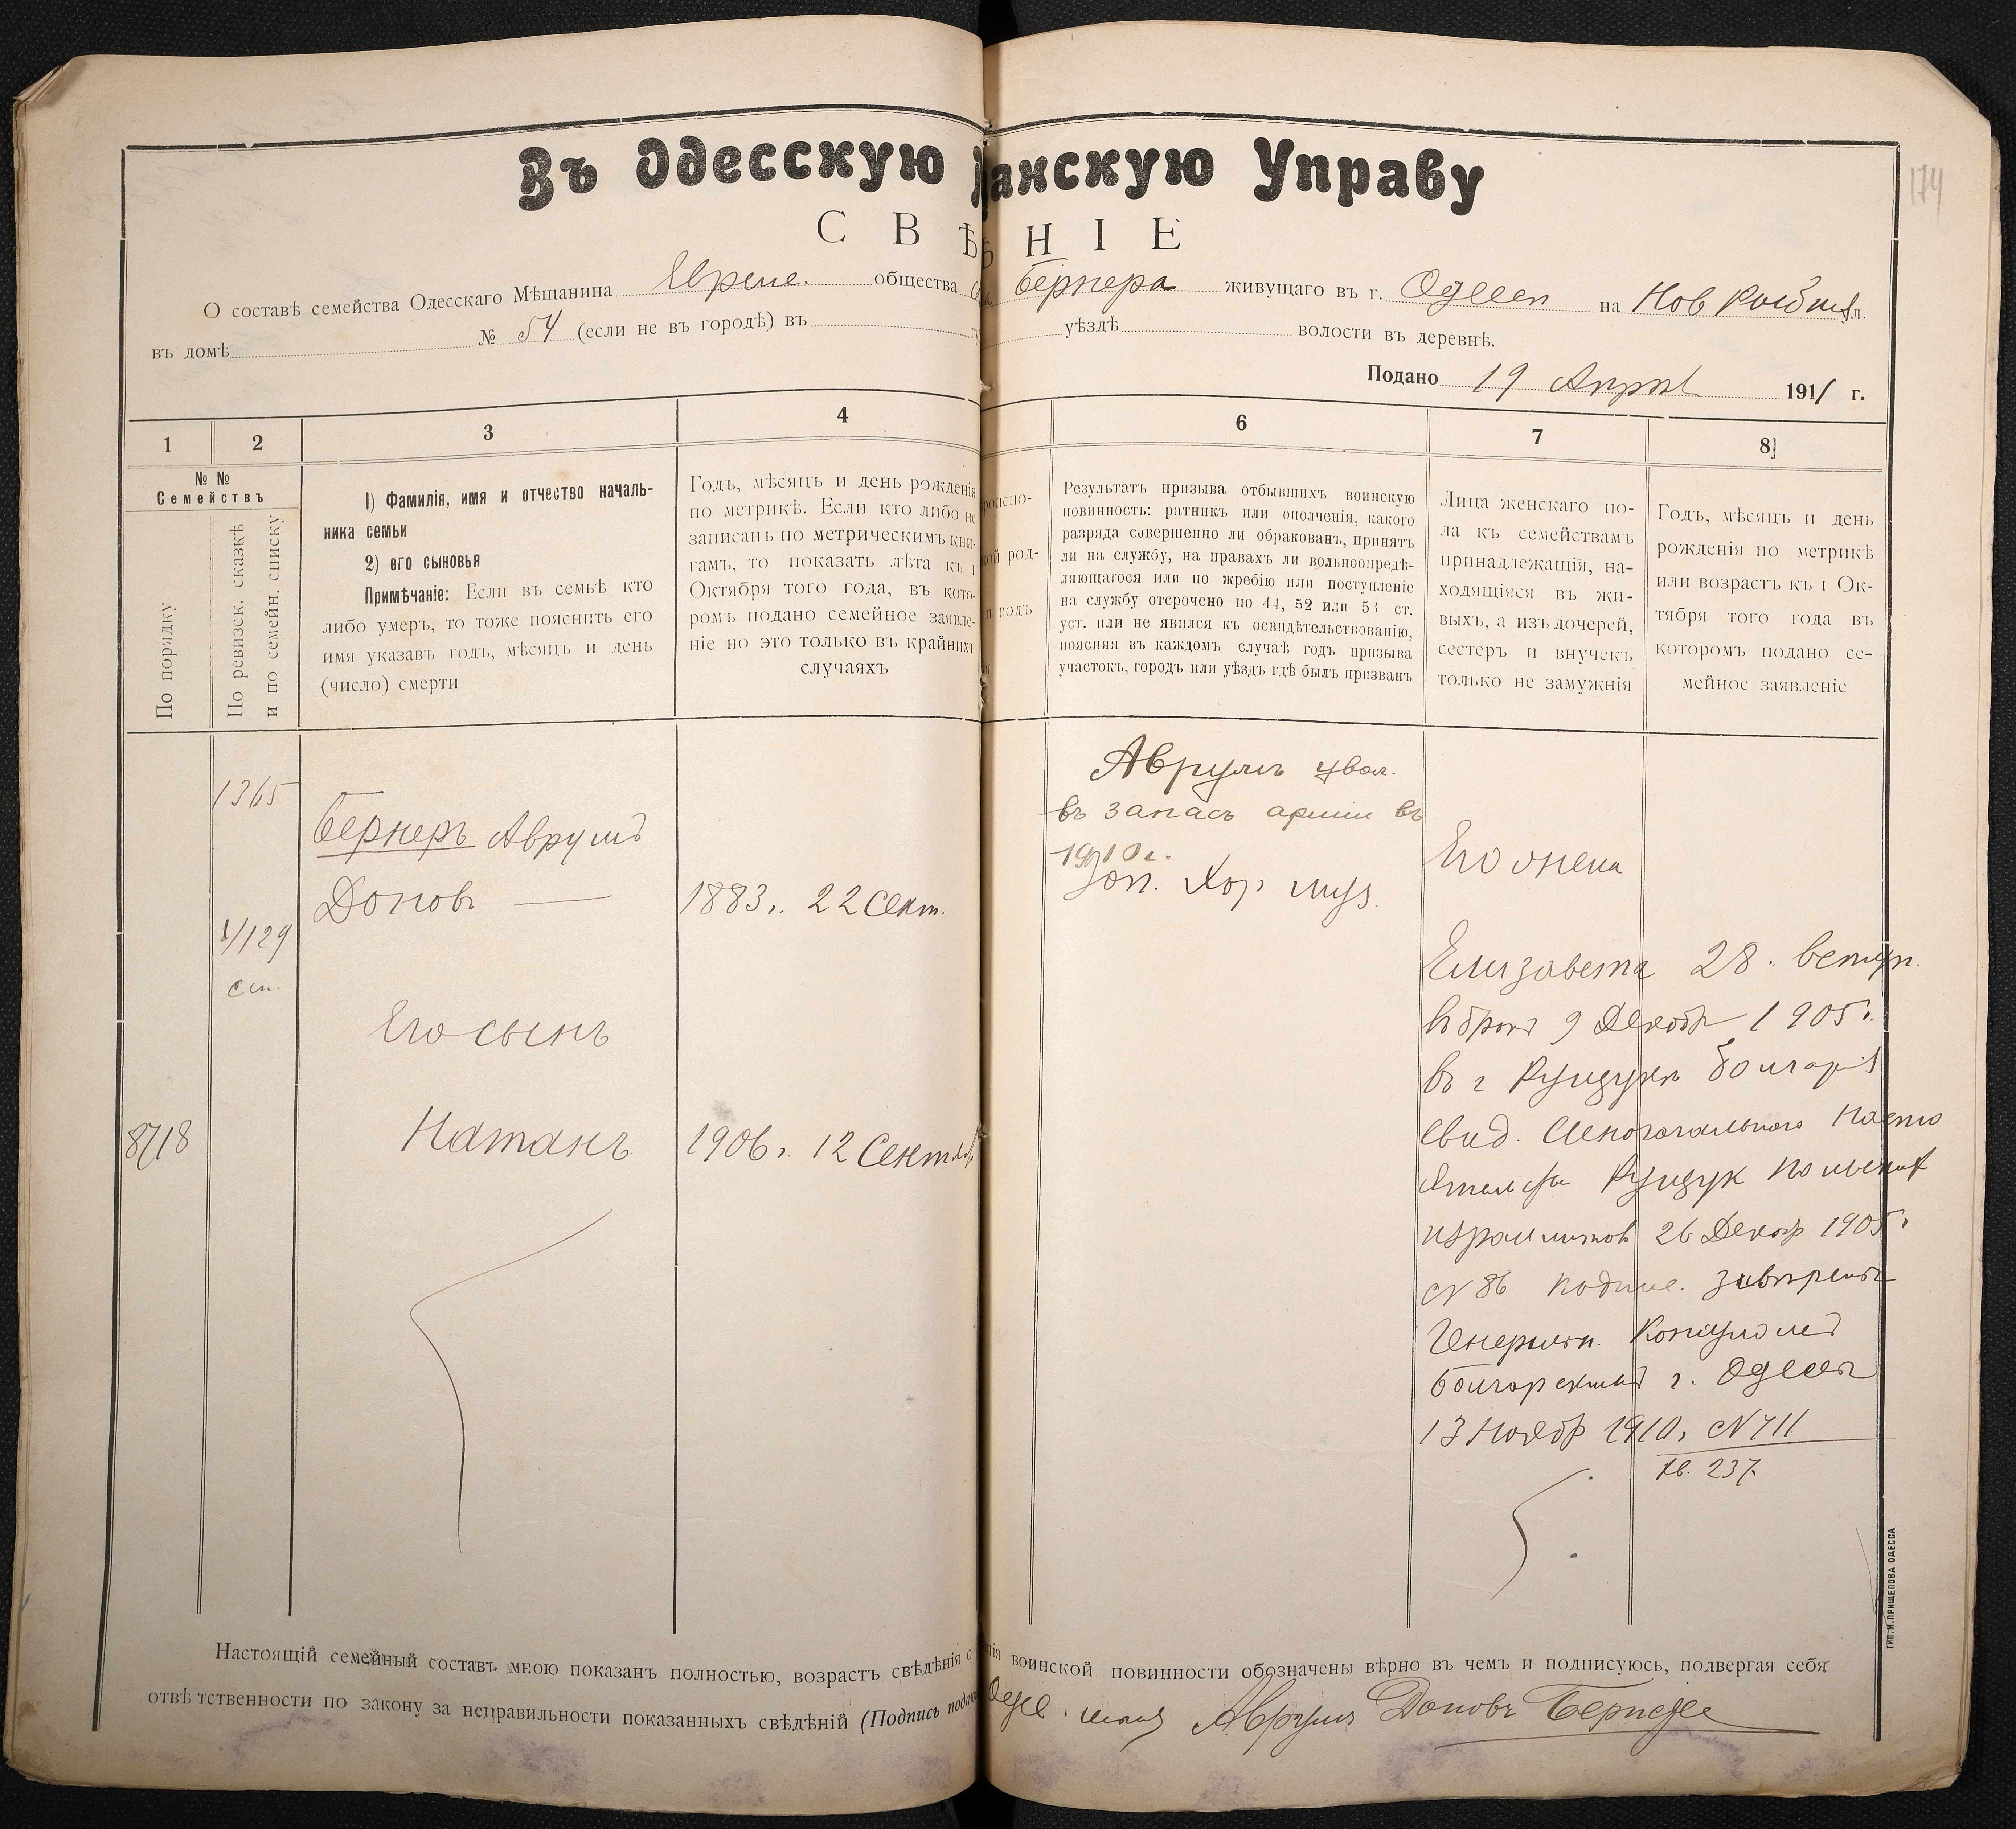 174
Въ Одесскую анскую Управу
СВѢ НІЕ
О составѣ семейства Одесскаго Мѣщанина Евреис. общества Бернера живущаго въ г. Одессѣ на Нов Рыбной ул.
въ домѣ № 54 (если не въ городѣ) въ уѣздѣ волости въ деревнѣ.
Подано 19 Апрѣл 1911 г.
1 2 3 4 6 7 8
№ №
Семействъ
По порядку
По ревизск. сказкѣ
и по семейн. списку
1) Фамилія, имя и отчество началь-
ника семьи
2) его сыновья
Примѣчаніе: Если въ семьѣ кто
либо умеръ, то тоже пояснить его
имя указавъ годъ, мѣсяцъ и день
(число) смерти
Годъ, мѣсяцъ и день рожденія
по метрикѣ. Если кто либо не
записанъ по метрическимъ кни-
гамъ, то показать лѣта къ 1
Октября того года, въ кото-
ромъ подано семейное заявле-
ніе но это только въ крайнихъ
случаяхъ
роиспо-
кой род-
и родъ
Результатъ призыва отбывшихъ воинскую
повинность: ратникъ или ополченія, какого
разряда совершенно ли обракованъ, принятъ
ли на службу, на правахъ ли вольноопредѣ-
ляющагося или по жребію или поступленіе
на службу отсрочено по 44, 52 или 53 ст.
уст. или не явился къ освидѣтельствованію,
поясняя въ каждомъ случаѣ годъ призыва
участокъ, городъ или уѣздъ гдѣ былъ призванъ
Лица женскаго по-
ла къ семействамъ
принадлежащія, на-
ходящіяся въ жи-
выхъ, а изъ дочерей,
сестеръ и внучекъ
только не замужнія
Годъ, мѣсяцъ и день
рожденія по метрикѣ
или возрастъ къ 1 Ок-
тября того года въ
которомъ подано се-
мейное заявленіе
1365
Бернеръ Аврумъ
Доновъ — 1883 г. 22 Сент.
1/129
сп.
Его сынъ
8718
Натанъ 1906 г. 12 Сентяб
Аврумъ увол.
въ запасъ арміи въ
1910 г.
Зап. Хор муз.
Его жена
Елизавета 28. вступ.
въ бракъ 9 Декабр 1905 г.
въ г Рущукъ Болгарія
Свид. Духовнаго Насто
ятельства Рущук
израилитовъ 26 Декабр 1905 г
№ 86 подпис. завѣрена
Генеральн. Консуломъ
болгарскимъ г. Одессы
13 Ноябр 1910 г. № 711
кв. 237.
Настоящій семейный составъ мною показанъ полностью, возрастъ свѣдѣнія о тія воинской повинности обозначены вѣрно въ чемъ и подписуюсь, подвергая себя
отвѣтственности по закону за неправильности показанныхъ свѣдѣній (Подпись Одес. мѣщ Аврумъ Доновъ Бернеръ
ТИП. М. ПРИЩЕПОВА ОДЕССА